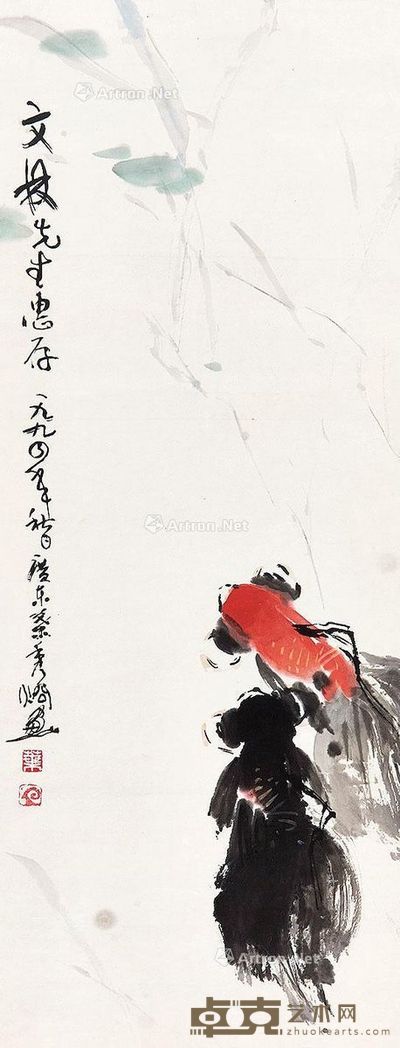 文林先生惠存 一九九四年秋月廣东葉秀炯畫
葉
Artron.Net
Artron.Net
Artron.Net
卓克艺术网
zhuokearts.com